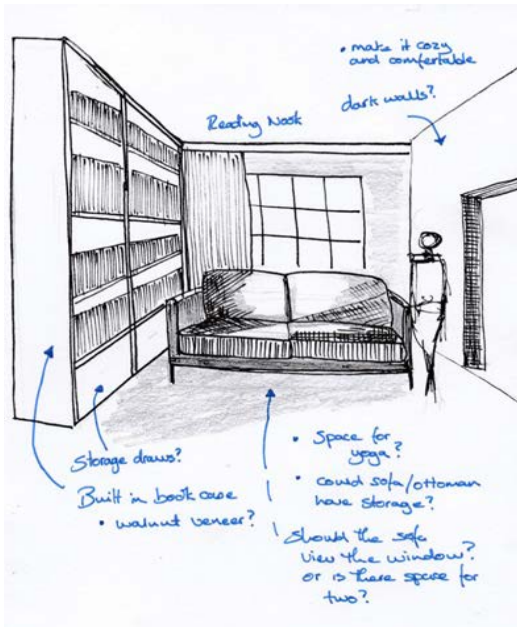 • make it cozy
and comfortable
dark walls?
Reading Nook
Storage draws?
Built in book case
• walnut veneer?
• Space for
yoga?
• could sofa/ottoman
have storage?
Should the sofa
view the window?
or is there space for
two?